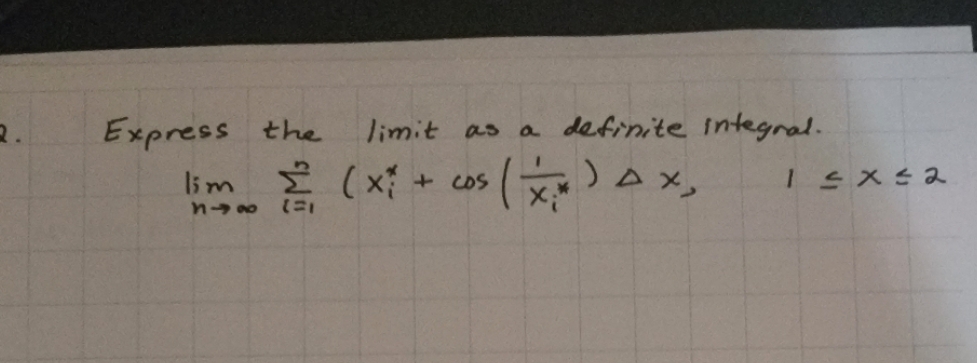 2. Express the limit as a definite integral.
lim n→∞ n Σ i=1 (xᵢ* + cos (1/xᵢ*) Δ x, 1 ≤ x ≤ 2